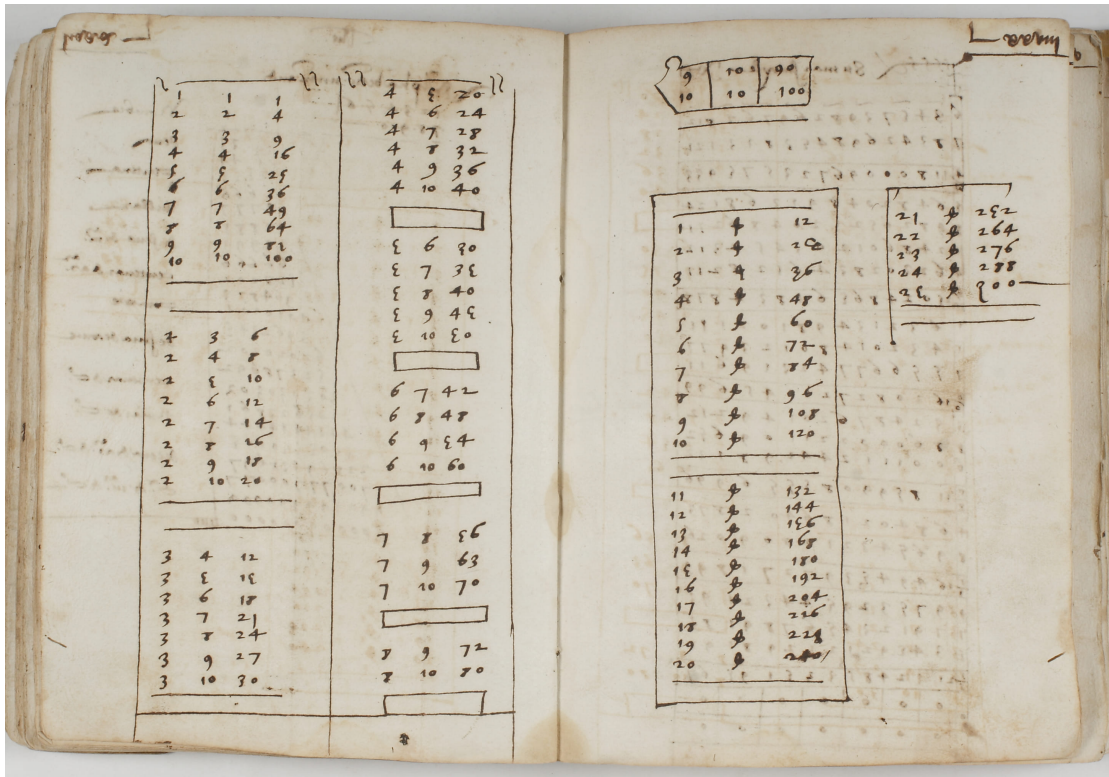 1 1 1
2 2 4
3 3 9
4 4 16
5 5 25
6 6 36
7 7 49
8 8 64
9 9 81
10 10 100
2 3 6
2 4 8
2 5 10
2 6 12
2 7 14
2 8 16
2 9 18
2 10 20
3 4 12
3 5 15
3 6 18
3 7 21
3 8 24
3 9 27
3 10 30
4 5 20
4 6 24
4 7 28
4 8 32
4 9 36
4 10 40
5 6 30
5 7 35
5 8 40
5 9 45
5 10 50
6 7 42
6 8 48
6 9 54
6 10 60
7 8 56
7 9 63
7 10 70
8 9 72
8 10 80
9 10 90
10 10 100
1 ß 12
2 ß 24
3 ß 36
4 ß 48
5 ß 60
6 ß 72
7 ß 84
8 ß 96
9 ß 108
10 ß 120
11 ß 132
12 ß 144
13 ß 156
14 ß 168
15 ß 180
16 ß 192
17 ß 204
18 ß 216
19 ß 228
20 ß 240
21 ß 252
22 ß 264
23 ß 276
24 ß 288
25 ß 300